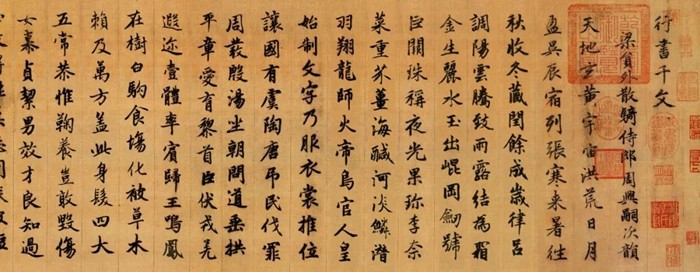 行書千文
梁員外散騎侍郎周興嗣次韻
天地玄黃宇宙洪荒日月
盈昃辰宿列張寒來暑往
秋收冬藏閏餘成歲律呂
調陽雲騰致雨露結為霜
金生麗水玉出崐岡劒號
巨闕珠稱夜光果珍李柰
菜重芥薑海鹹河淡鱗潛
羽翔龍師火帝鳥官人皇
始制文字乃服衣裳推位
讓國有虞陶唐弔民伐罪
周發殷湯坐朝問道垂拱
平章愛育黎首臣伏戎羌
遐邇壹體率賓歸王鳴鳳
在樹白駒食場化被草木
賴及萬方蓋此身髮四大
五常恭惟鞠養豈敢毀傷
女慕貞絜男效才良知過